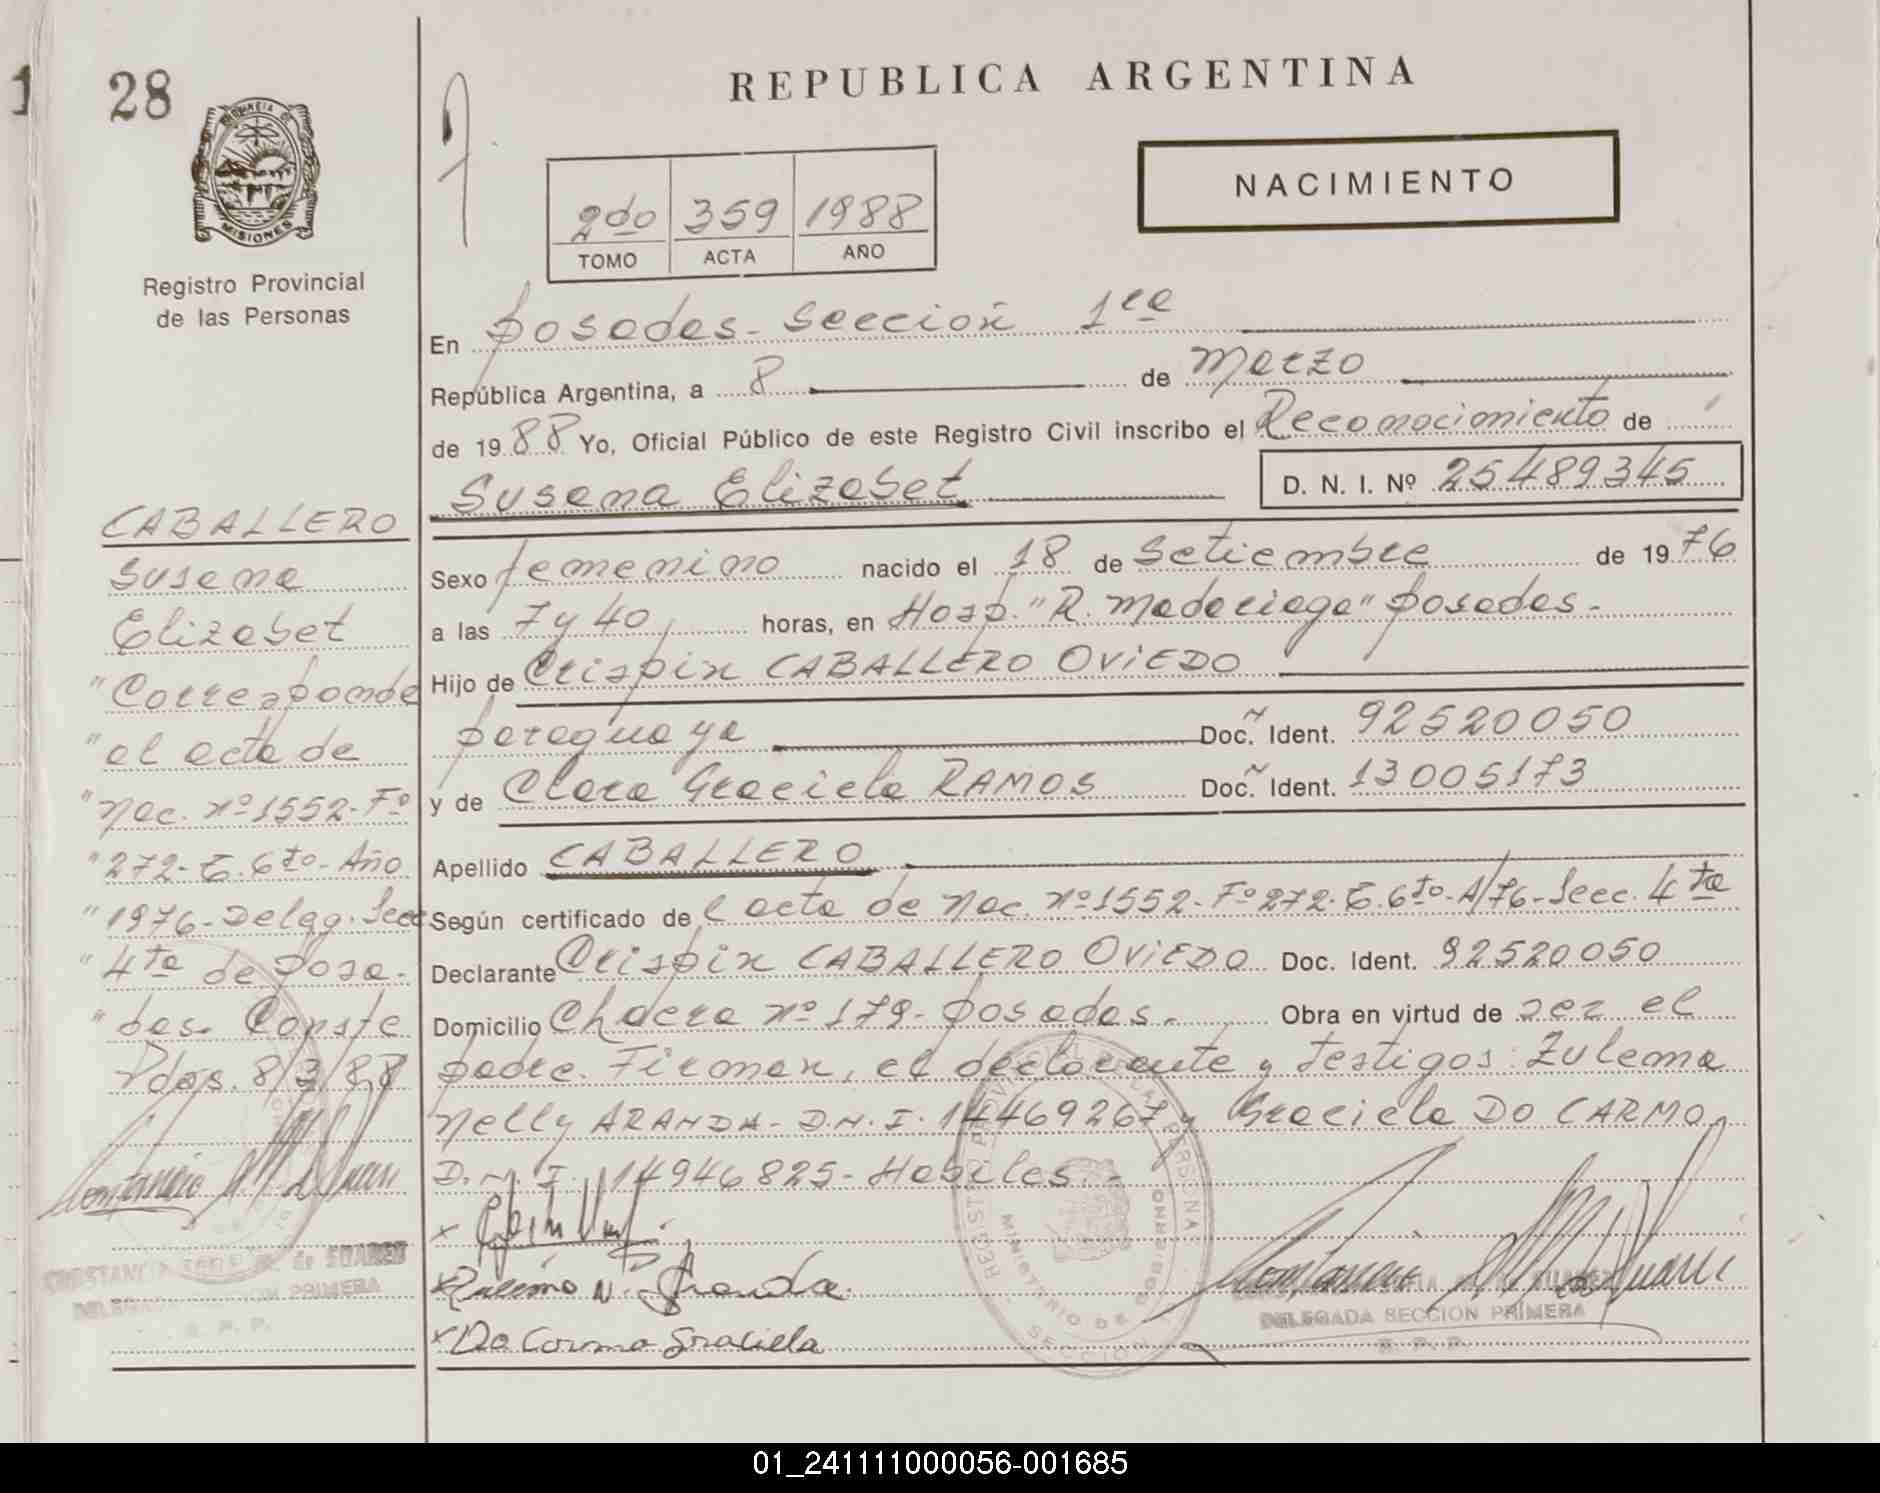 28
REPUBLICA ARGENTINA
NACIMIENTO
PROVINCIA DE
MISIONES
Registro Provincial
de las Personas
2do 359 1988
TOMO ACTA AÑO
En Posadas - Sección 1ra
República Argentina, a 8 de Marzo
de 1988 Yo, Oficial Público de este Registro Civil inscribo el Reconocimiento de
Susana Elizabet D. N. I. Nº 25489345
Sexo femenino nacido el 18 de Setiembre de 1976
a las 7 y 40 horas, en Hosp. "R. Madariaga" Posadas -
Hijo de Crispin CABALLERO OVIEDO
paraguaya Doc. Ident. 92520050
y de Clara Graciela RAMOS Doc. Ident. 13005173
Apellido CABALLERO
Según certificado de l acta de Nac. Nº 1552 - Fº 272 - T. 6to - A/76 - Secc. 4ta
Declarante Crispin CABALLERO OVIEDO Doc. Ident. 92520050
Domicilio Chacra Nº 179 - Posadas. - Obra en virtud de ser el
padre. Firman, el declarante y testigos: Zulema
Nelly ARANDA - D.N.I. 14469267 y Graciela DO CARMO,
D.N.I. 14946825 - Habiles. -
x
x Zulema N. Aranda.
x Do Carmo Graciela
CABALLERO
Susana
Elizabet
"Corresponde
"al acta de
"Nac. Nº 1552 - Fº
"272 - T. 6to - Año
"1976 - Deleg. Secc
"4ta de Posa-
"das. Conste
Pdas. 8/3/88
DE SUAREZ
DELEGADA SECCION PRIMERA
R. P. P.
MINISTERIO DE GOBIERNO
SECCION
SUAREZ
DELEGADA SECCION PRIMERA
R. P. P.
01_241111000056-001685